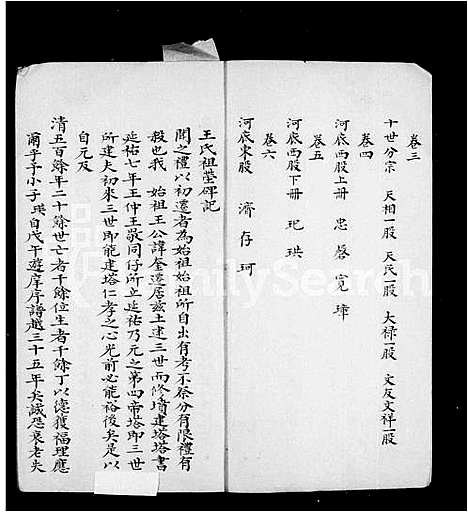 卷三
十世分宗 天相一股 天民一股 大祿一股 文友文祥一股
卷四
河底西股上冊 忠 磬 寬 璋
卷五
河底西股下冊 玘 珙
卷六
河底東股 濟 存 珂
王氏祖塋碑記
聞之禮以初遷者為始祖始祖所自出有考不祭分有限禮有
殺也我 始祖王公諱奎遷居茲土逮三世而修墳建塔塔書
延祐七年王仲王敬同仔所立延祐乃元之第四帝塔即三世
所建夫初來三世即能建塔仁孝之心光前必能裕後矣是以
自元及
清五百餘年二十餘世亡者千餘位生者千餘丁以德獲福理應
爾乎予小子珙自戊午遊庠序譜越三十五年矣誠恐衰老失
FamilySearch